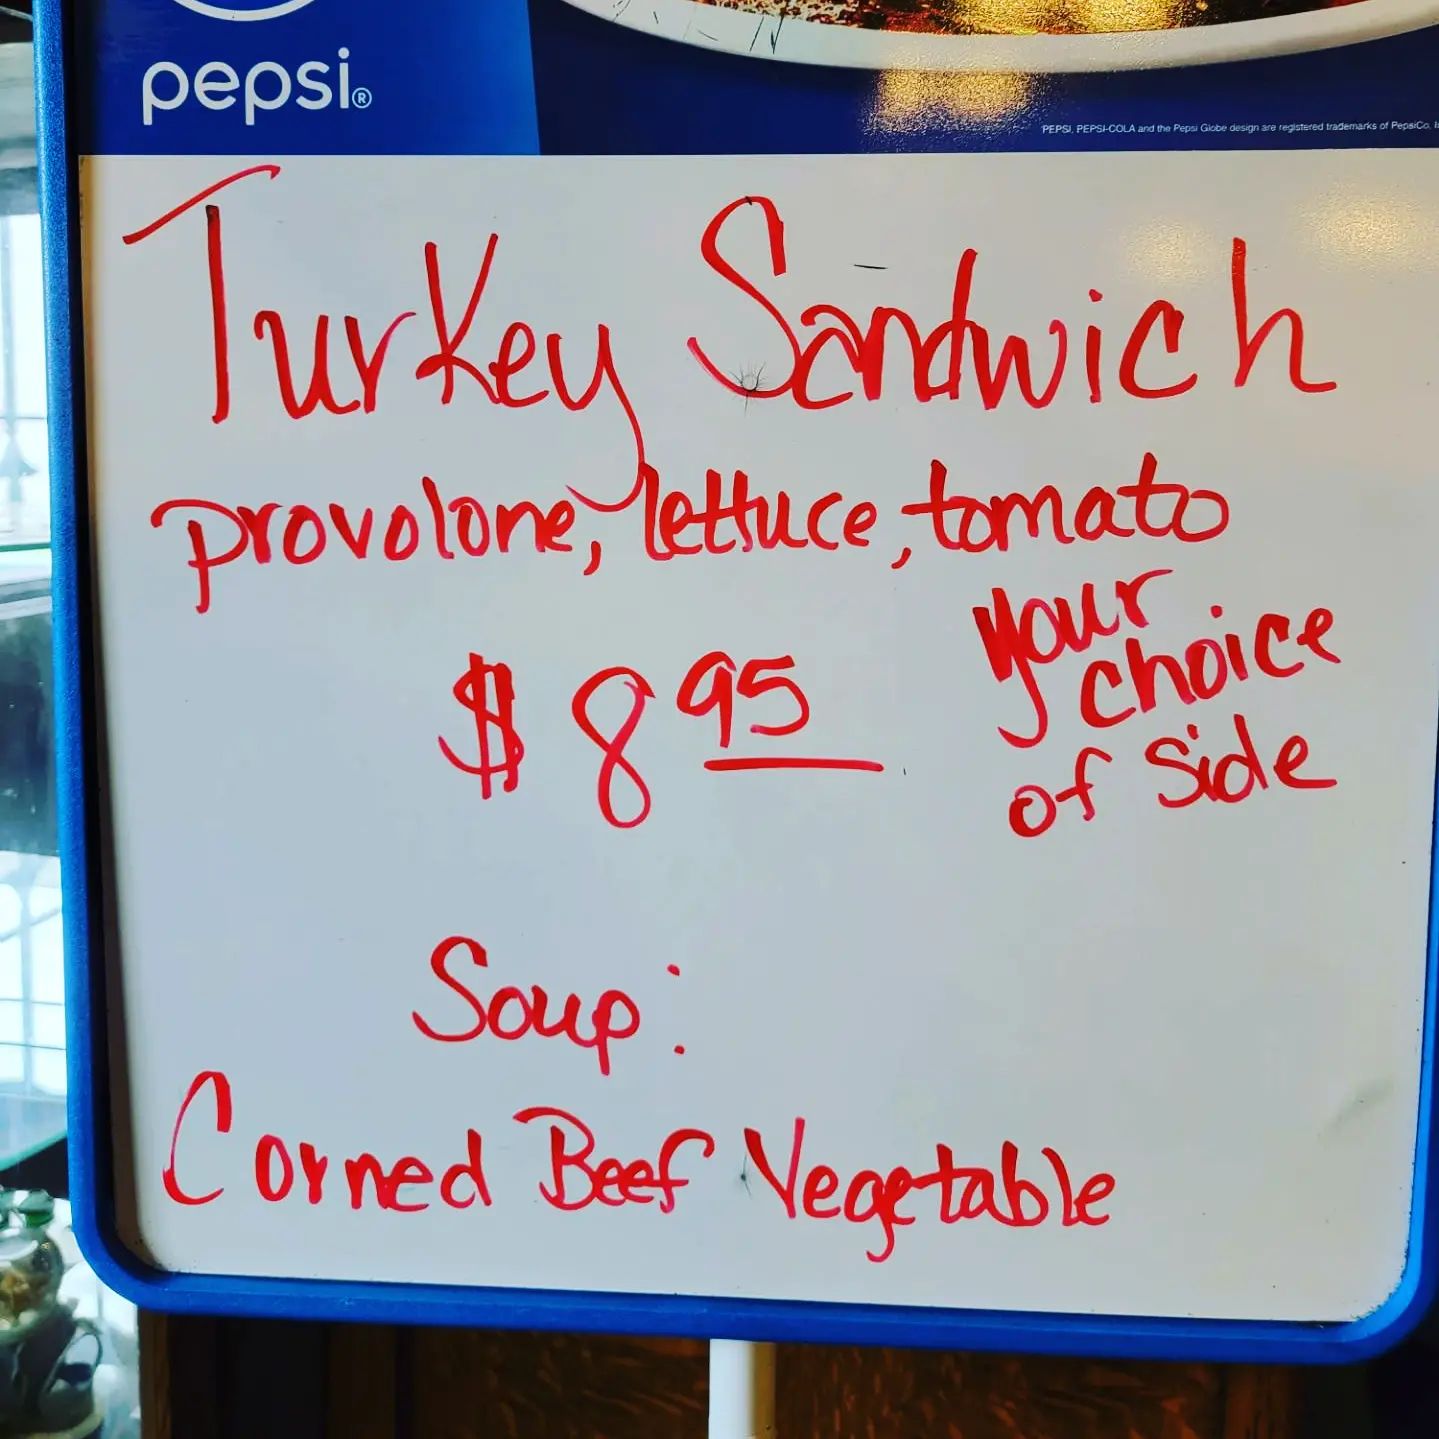 pepsi®
PEPSI, PEPSI-COLA and the Pepsi Globe design are registered trademarks of PepsiCo,
Turkey Sandwich
provolone, lettuce, tomato
$8 95
your
choice
of side
Soup:
Corned Beef Vegetable